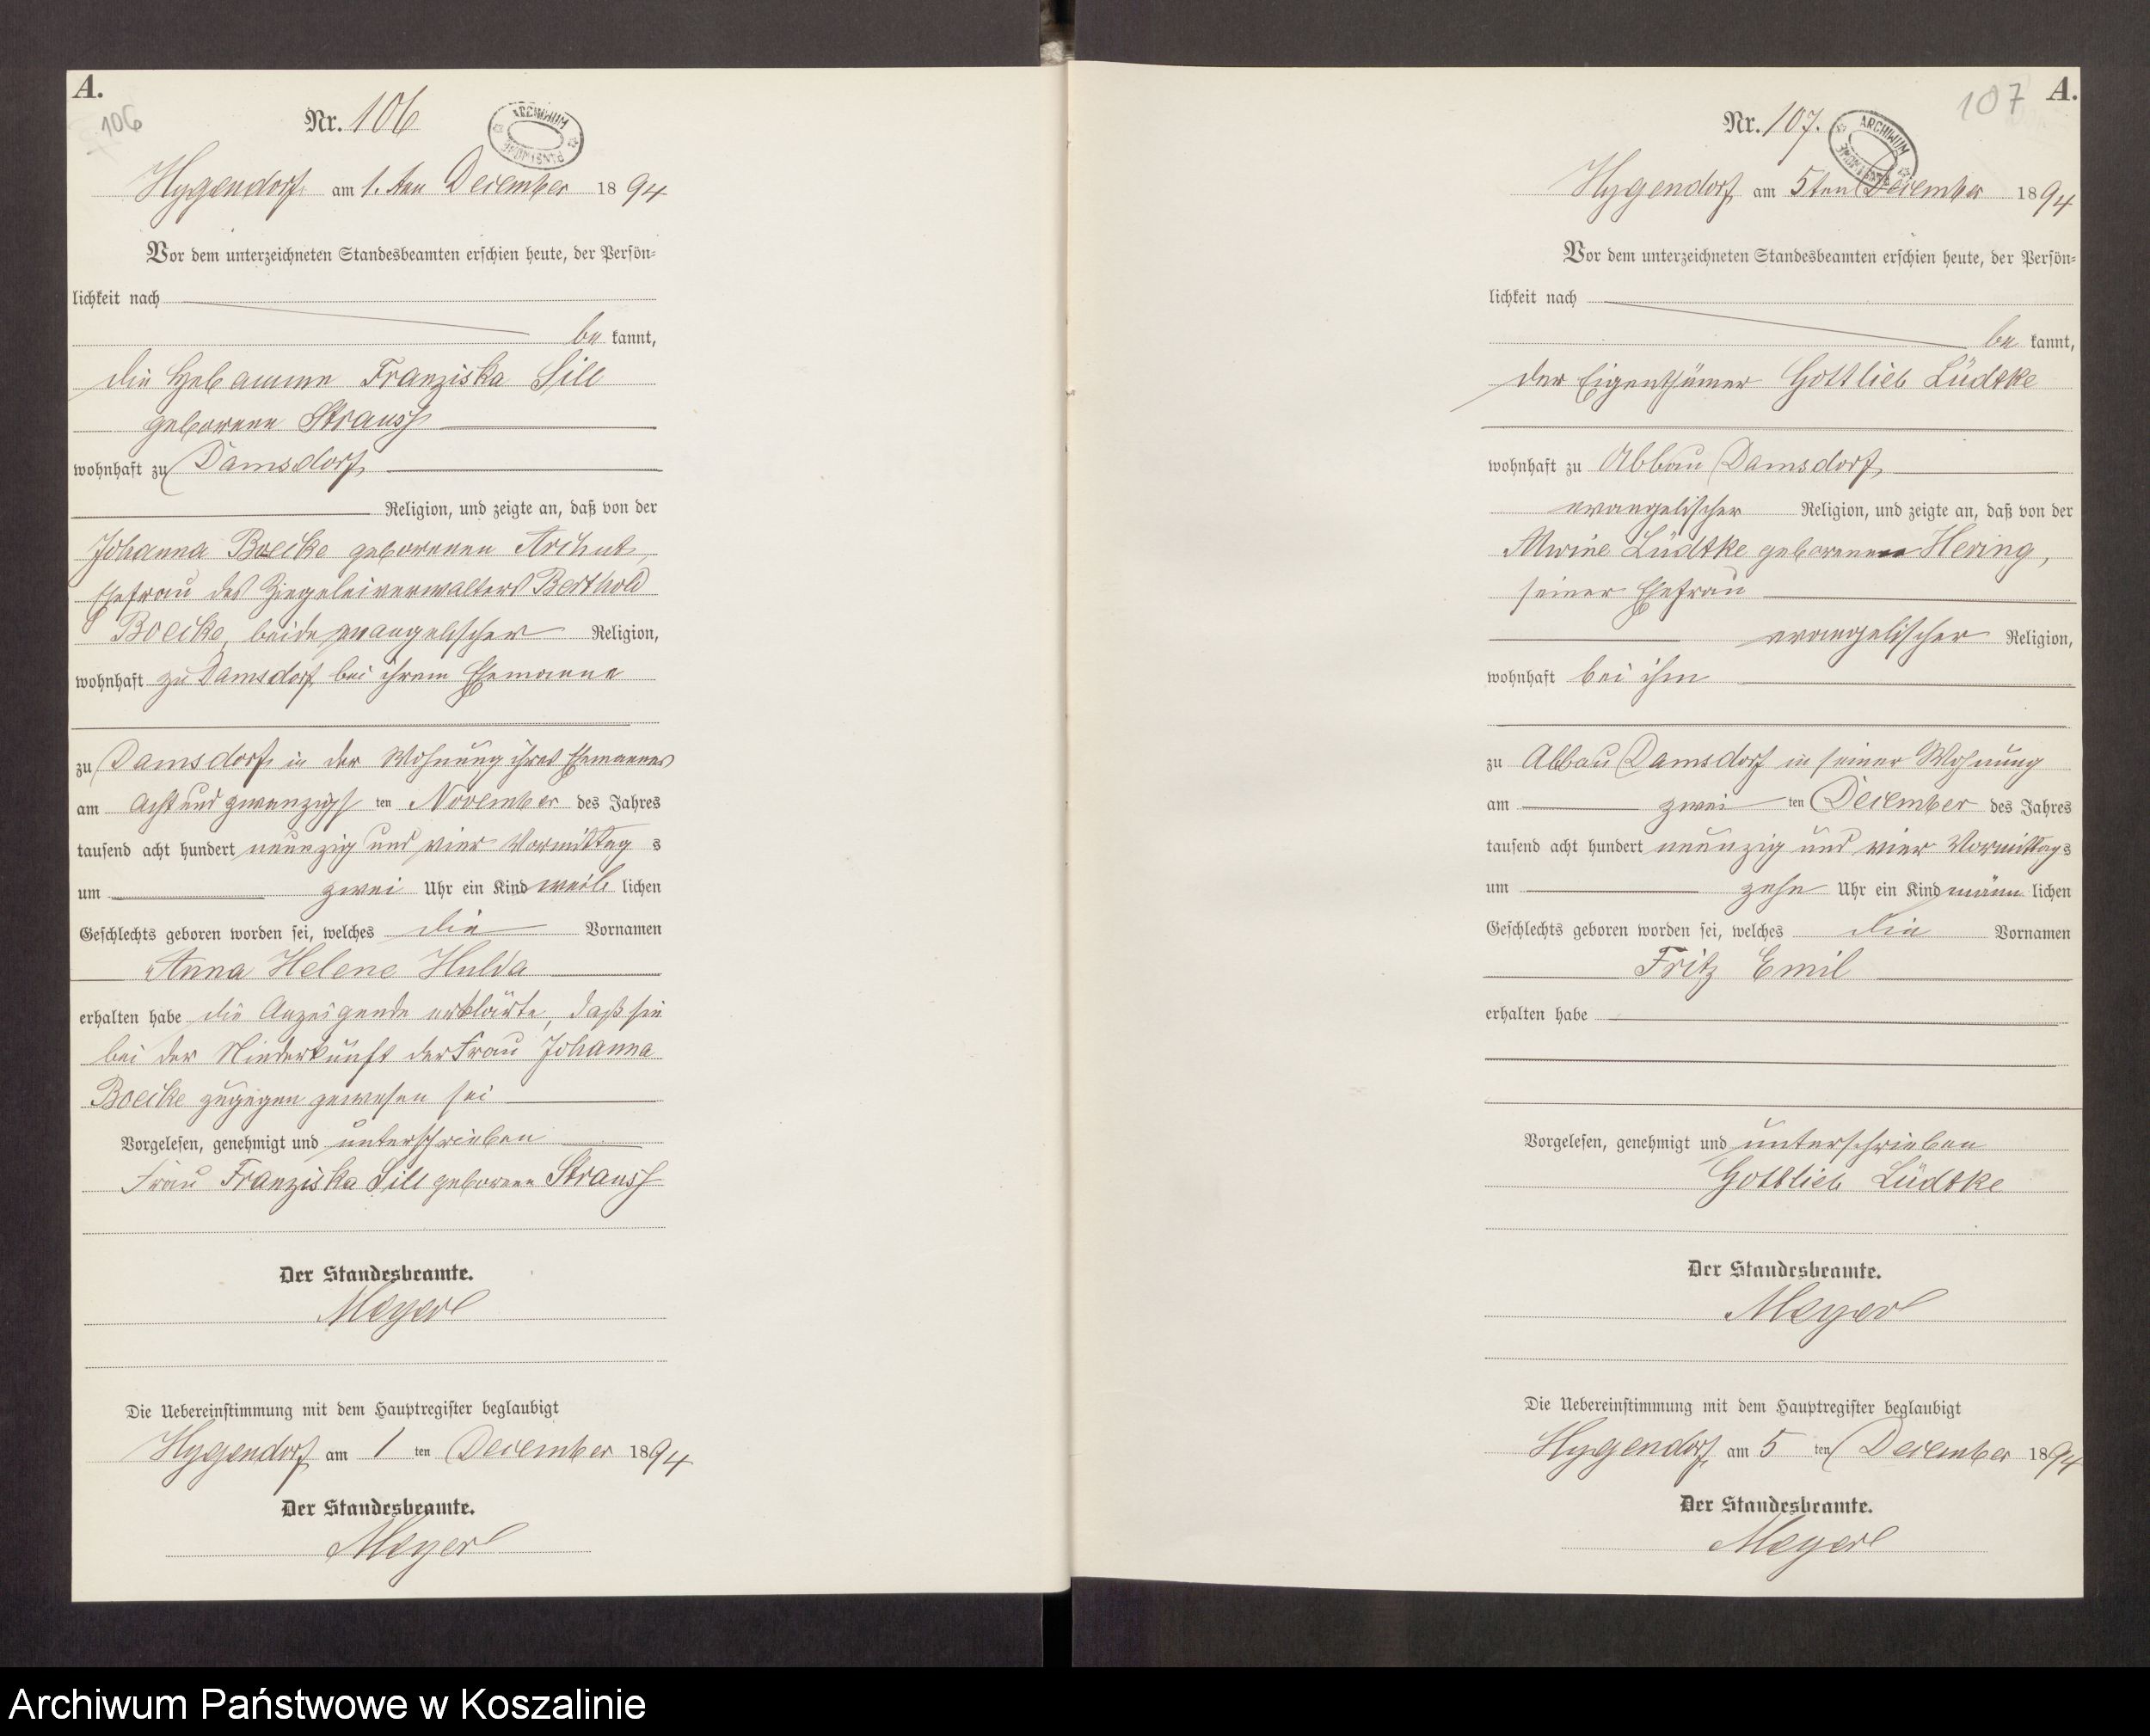 A.
106
Nr. 106
ARCHIWUM PAŃSTWOWE
Hygendorf am 1. ten December 1894
Vor dem unterzeichneten Standesbeamten erschien heute, der Persön-
lichkeit nach
be kannt,
die Hebamme Franziska Sill
geborene Strauss
wohnhaft zu Damsdorf
Religion, und zeigte an, daß von der
Johanna Boecke geborenen Archut,
Ehefrau des Ziegeleiverwalters Berthold
Boecke, beide evangelischer Religion,
wohnhaft zu Damsdorf, bei ihrem Ehemanne
zu Damsdorf in der Wohnung ihres Ehemannes
am acht und zwanzigs ten November des Jahres
tausend acht hundert neunzig und vier Vormittag s
um zwei Uhr ein Kind weib lichen
Geschlechts geboren worden sei, welches die Vornamen
Anna Helene Hulda
erhalten habe die Anzeigende erklärte, daß sie
bei der Niederkunft der Frau Johanna
Boecke zugegen gewesen sei
Vorgelesen, genehmigt und unterschrieben
Frau Franziska Sill geborene Strauss
Der Standesbeamte.
Meyer
Die Uebereinstimmung mit dem Hauptregister beglaubigt
Hygendorf am 1 ten December 1894
Der Standesbeamte.
Meyer
107 A.
Nr. 107.
ARCHIWUM PAŃSTWOWE
Hygendorf am 5ten December 1894
Vor dem unterzeichneten Standesbeamten erschien heute, der Persön-
lichkeit nach
be kannt,
der Eigenthümer Gottlieb Lüdtke
wohnhaft zu Abbau Damsdorf
evangelischer Religion, und zeigte an, daß von der
Alwine Lüdtke geborenen Hering,
seiner Ehefrau
evangelischer Religion,
wohnhaft bei ihm
zu Abbau Damsdorf in seiner Wohnung
am zwei ten December des Jahres
tausend acht hundert neunzig und vier Vormittags
um zehn Uhr ein Kind männ lichen
Geschlechts geboren worden sei, welches die Vornamen
Fritz Emil
erhalten habe
Vorgelesen, genehmigt und unterschrieben
Gottlieb Lüdtke
Der Standesbeamte.
Meyer
Die Uebereinstimmung mit dem Hauptregister beglaubigt
Hygendorf, am 5 ten December 1894
Der Standesbeamte.
Meyer
Archiwum Państwowe w Koszalinie